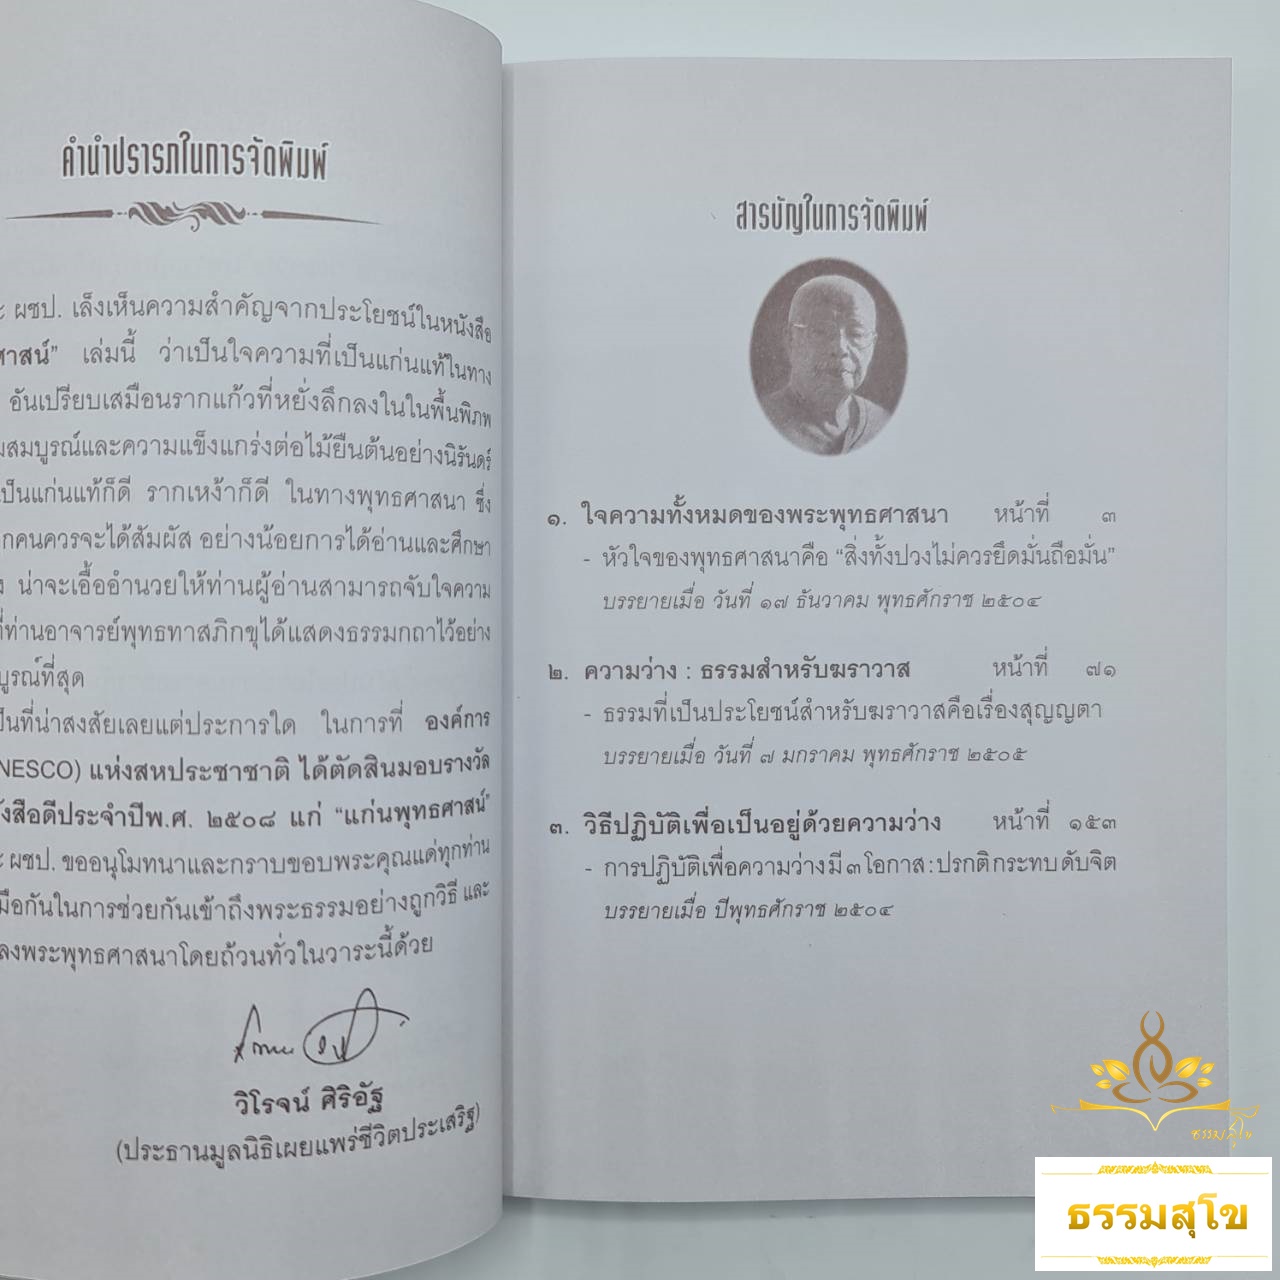 คำนำปรารภในการจัดพิมพ์
ผชป. เล็งเห็นความสำคัญจากประโยชน์ในหนังสือ
ศาสน์” เล่มนี้ ว่าเป็นใจความที่เป็นแก่นแท้ในทาง
อันเปรียบเสมือนรากแก้วที่หยั่งลึกลงในในพื้นพิภพ
สมบูรณ์และความแข็งแกร่งต่อไม้ยืนต้นอย่างนิรันดร์
เป็นแก่นแท้ก็ดี รากเหง้าก็ดี ในทางพุทธศาสนา ซึ่ง
กคนควรจะได้สัมผัส อย่างน้อยการได้อ่านและศึกษา
น่าจะเอื้ออำนวยให้ท่านผู้อ่านสามารถจับใจความ
ที่ท่านอาจารย์พุทธทาสภิกขุได้แสดงธรรมกถาไว้อย่าง
บูรณ์ที่สุด
ป็นที่น่าสงสัยเลยแต่ประการใด ในการที่ องค์การ
NESCO) แห่งสหประชาชาติ ได้ตัดสินมอบรางวัล
ังสือดีประจำปีพ.ศ. ๒๕๐๘ แก่ “แก่นพุทธศาสน์”
ะ ผชป. ขออนุโมทนาและกราบขอบพระคุณแด่ทุกท่าน
มือกันในการช่วยกันเข้าถึงพระธรรมอย่างถูกวิธี และ
ลงพระพุทธศาสนาโดยถ้วนทั่วในวาระนี้ด้วย
วิโรจน์ ศิริอัฐ
(ประธานมูลนิธิเผยแพร่ชีวิตประเสริฐ)
สารบัญในการจัดพิมพ์
๑. ใจความทั้งหมดของพระพุทธศาสนา หน้าที่ ๓
- หัวใจของพุทธศาสนาคือ “สิ่งทั้งปวงไม่ควรยึดมั่นถือมั่น”
บรรยายเมื่อ วันที่ ๑๗ ธันวาคม พุทธศักราช ๒๕๐๔
๒. ความว่าง : ธรรมสำหรับฆราวาส หน้าที่ ๗๑
- ธรรมที่เป็นประโยชน์สำหรับฆราวาสคือเรื่องสุญญตา
บรรยายเมื่อ วันที่ ๗ มกราคม พุทธศักราช ๒๕๐๕
๓. วิธีปฏิบัติเพื่อเป็นอยู่ด้วยความว่าง หน้าที่ ๑๕๓
- การปฏิบัติเพื่อความว่างมี ๓ โอกาส : ปรกติ กระทบ ดับจิต
บรรยายเมื่อ ปีพุทธศักราช ๒๕๐๔
ธรรมสุโข
ธรรมสุโข